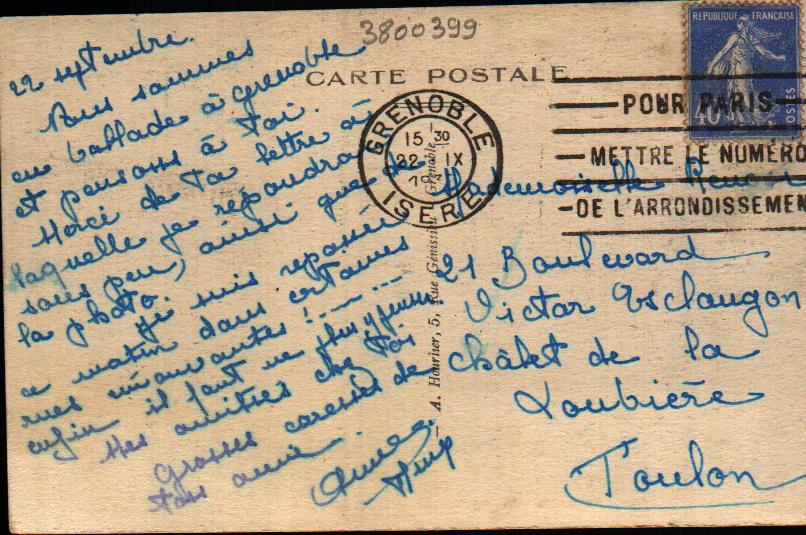 3800399
CARTE POSTALE
RÉPUBLIQUE FRANÇAISE
40
POSTES
POUR PARIS
METTRE LE NUMÉRO
DE L'ARRONDISSEMEN
GRENOBLE
15 30
22 IX
ISERE
A. Hourier, 5, Rue Génissieu Grenoble
22 septembre.
Nous sommes
en ballade à Grenoble
et pensons à toi.
Merci de ta lettre à
laquelle je répondrai
sous peu, ainsi que de
la photo.
Je suis repassée
ce matin dans certaines
rues émouvantes !
enfin il faut ne plus y penser
Mes amitiés chez toi
Grosses caresses de
ton amie
Mademoiselle
21 Boulevard
Victor Esclangon
Châlet de la
Loubière
Toulon